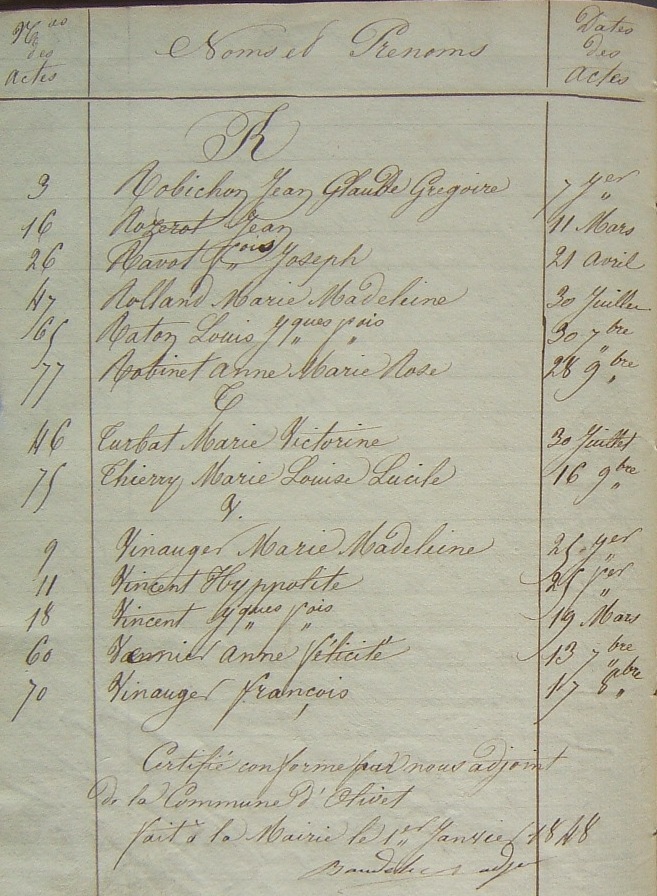 Nos des actes Noms et Prenoms Dates des actes
R
3 Robichon Jean Glaude Gregoire 7 Jer
16 Rozerot Jean 11 Mars
26 Ravot fois Joseph 21 avril
47 Rolland Marie Madeleine 30 Juillet
65 Raton Louis Jques fois 30 7bre
77 Robinet anne Marie Rose 28 9bre
T
46 Turbat Marie Victorine 30 Juillet
75 Thierry Marie Louise Lucile 16 9bre
V.
9 Vinauger Marie Madeleine 25 Jer
11 Vincent Hyppolite 25 fer
18 Vincent Jques fois 19 Mars
60 Vannier anne félicité 13 7bre
70 Vinauger françois 17 8bre
Certifié conforme par nous adjoint
de la Commune d'Olivet
fait à la Mairie le 1er Janvier 1848